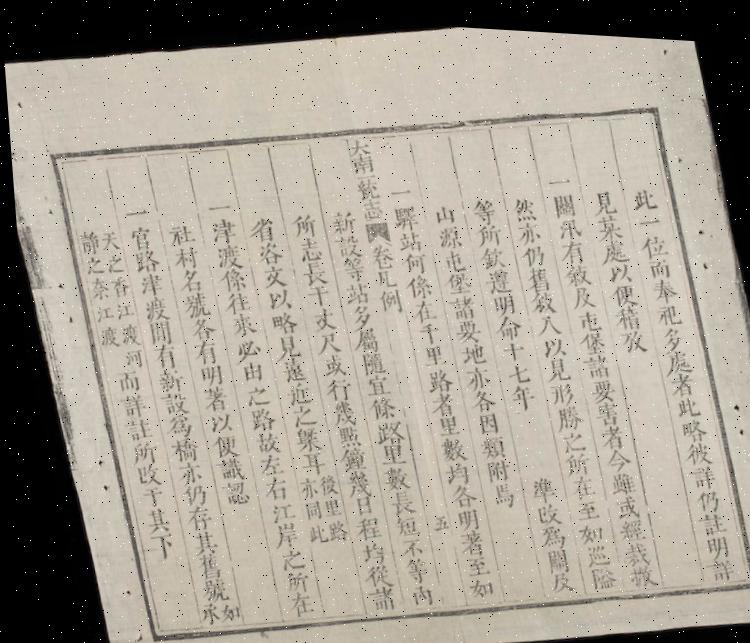 此一位而奉祀多處者此略彼詳仍註明詳
見某處以便稽攷
一關汛有裁及屯堡諸要害者今雖或經裁撤
然亦仍舊敘入以見形勝之所在至如巡隘
等所欽遵明命十七年 準改為關及
山源屯堡諸要地亦各因類附焉
一驛站何係在千里路者里數均各明著至如
大南一統志 卷凡例 五
新設等站多屬隨宜條路里數長短不等內
所志長干丈尺或行幾點鐘幾日程均從諸
省洛文以略見遠近之槩耳後里路亦同此
一津渡係往來必由之路故左右江岸之所在
社村名號各有明著以便識認
一官路津渡間有新設為橋亦仍存其舊號如承
天之香江渡河靜之奈江渡而詳註所改于其下